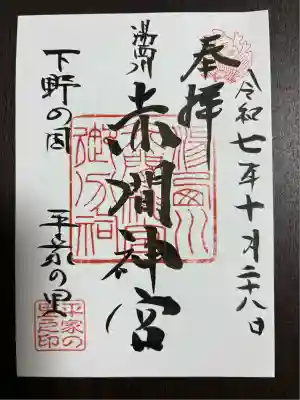 令和七年十月二十八日
奉拝
湯西川
赤間神宮
下野の国 平家の里
平家の里之印